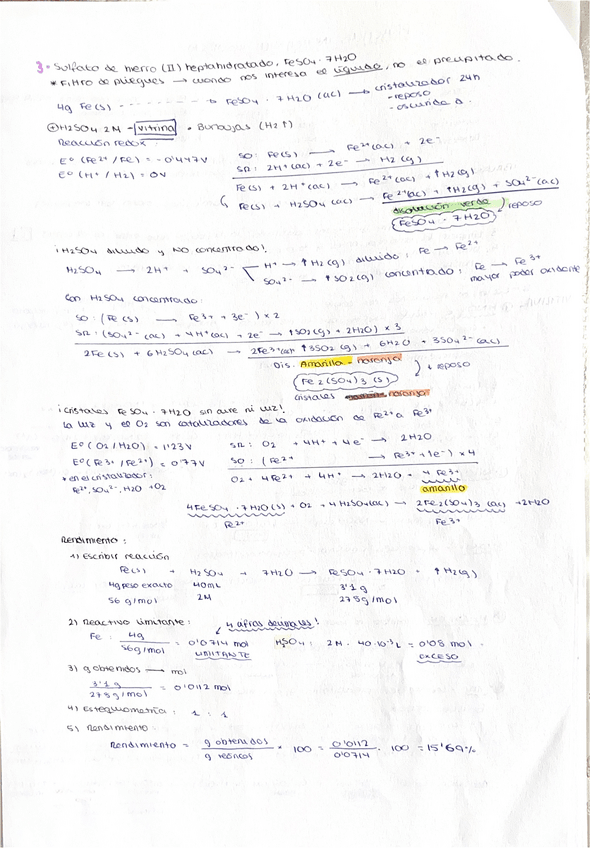 3- Sulfato de hierro (II) heptahidratado, FeSO4 · 7H2O
* Filtro de pliegues → cuando nos interesa el líquido, no el precipitado.
4g Fe(s) - - - - - - - → FeSO4 · 7H2O (ac) → cristalizador 24h
- reposo
- oscuridad
⊕ H2SO4 2M - vitrina • Burbujas (H2↑)
Reacción redox:
E° (Fe2+/Fe) = -0'447V
E° (H+/H2) = 0V
SO: Fe(s) → Fe2+(ac) + 2e-
SR: 2H+(ac) + 2e- → H2(g)
Fe(s) + 2H+(ac) → Fe2+(ac) + ↑H2(g)
↳ Fe(s) + H2SO4(ac) → Fe2+(ac) + ↑H2(g) + SO42-(ac)
disolución verde
FeSO4 · 7H2O
reposo
¡H2SO4 diluido y NO concentrado!
H2SO4 → 2H+ + SO42-
H+ → ↑H2(g) diluido: Fe → Fe2+
SO42- → ↑SO2(g) concentrado: Fe → Fe3+
mayor poder oxidante
Con H2SO4 concentrado:
SO: (Fe(s) → Fe3+ + 3e-) × 2
SR: (SO42-(ac) + 4H+(ac) + 2e- → ↑SO2(g) + 2H2O) × 3
2Fe(s) + 6H2SO4(ac) → 2Fe3+(ac) + ↑3SO2(g) + 6H2O + 3SO42-(ac)
Dis. Amarilla - naranja
Fe2(SO4)3 (s)
↓ reposo
cristales naranja
¡Cristales FeSO4 · 7H2O sin aire ni luz!
La luz y el O2 son catalizadores de la oxidación de Fe2+ a Fe3+
E° (O2/H2O) = 1'23V
E° (Fe3+/Fe2+) = 0'77V
* en el cristalizador:
Fe2+, SO42-, H2O + O2
SR: O2 + 4H+ + 4e- → 2H2O
SO: (Fe2+ → Fe3+ + 1e-) × 4
O2 + 4Fe2+ + 4H+ → 2H2O + 4Fe3+
amarillo
4FeSO4 · 7H2O(s) + O2 + 4H2SO4(ac) → 2Fe2(SO4)3 (ac) + 2H2O
Fe2+ Fe3+
Rendimiento:
1) Escribir reacción
Fe(s) + H2SO4 + 7H2O → FeSO4 · 7H2O + ↑H2(g)
4g peso exacto 40mL 3'1g
56 g/mol 2M 278g/mol
2) Reactivo limitante: 4 cifras decimales!
Fe: 4g / 56g/mol = 0'0714 mol H2SO4: 2M · 40·10-3 L = 0'08 mol
LIMITANTE EXCESO
3) g obtenidos → mol
3'1 g / 278 g/mol = 0'0112 mol
4) Estequiometría: 1 : 1
5) Rendimiento:
Rendimiento = g obtenidos / g teóricos × 100 = 0'0112 / 0'0714 · 100 = 15'69%